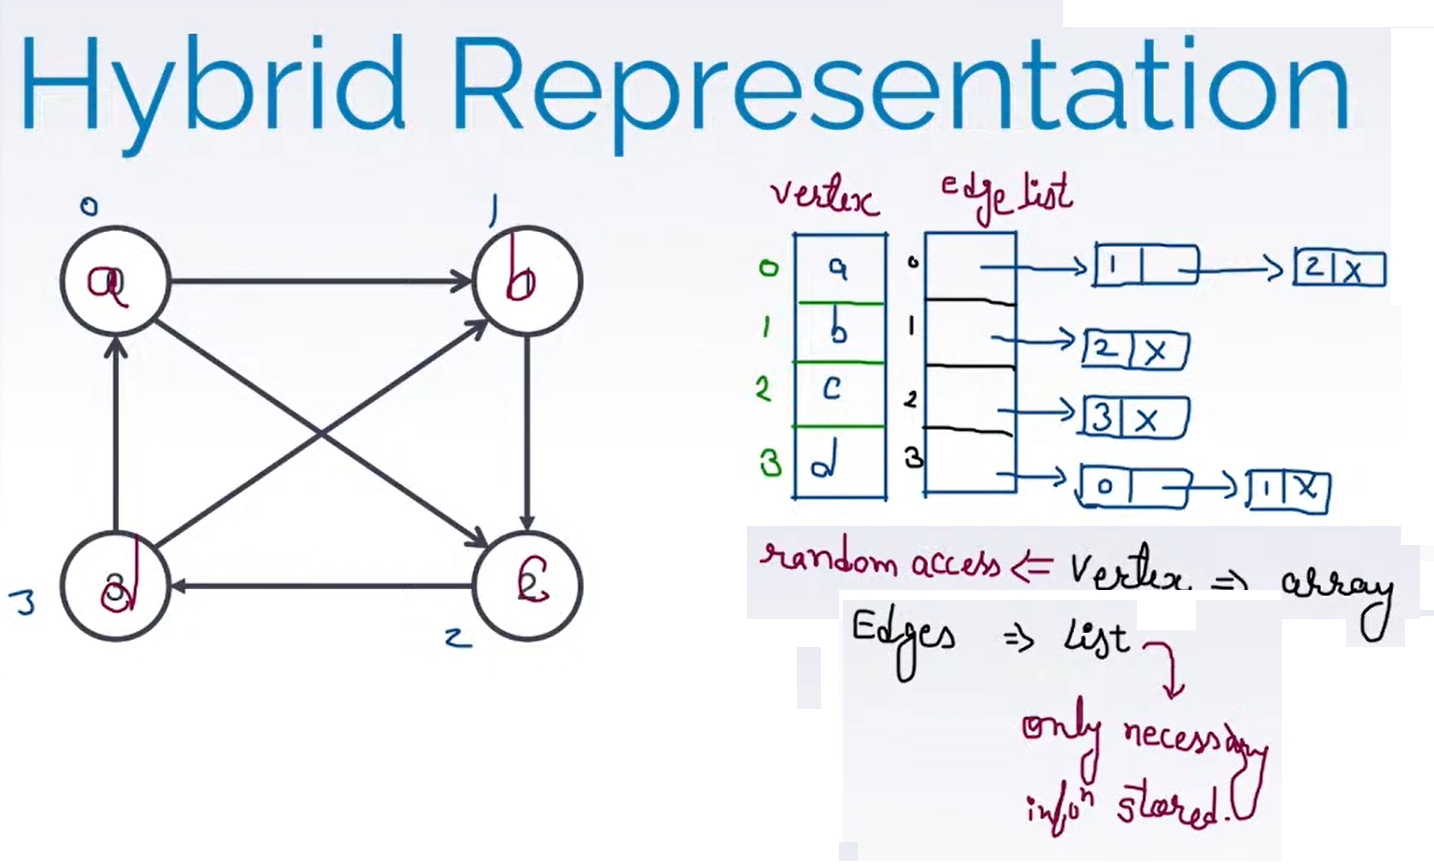 Hybrid Representation
0
1
a
b
d
c
3
2
vertex
edge list
0 a 0 1 2 X
1 b 1 2 X
2 c 2 3 X
3 d 3 0 1 X
random access <= Vertex => array
Edges => List
only necessary
infoⁿ stored.